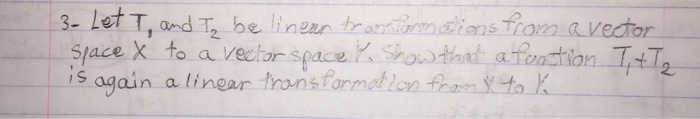 3- Let T₁ and T₂ be linear transformations from a vector
space X to a vector space Y. Show that a function T₁+T₂
is again a linear transformation from X to Y.